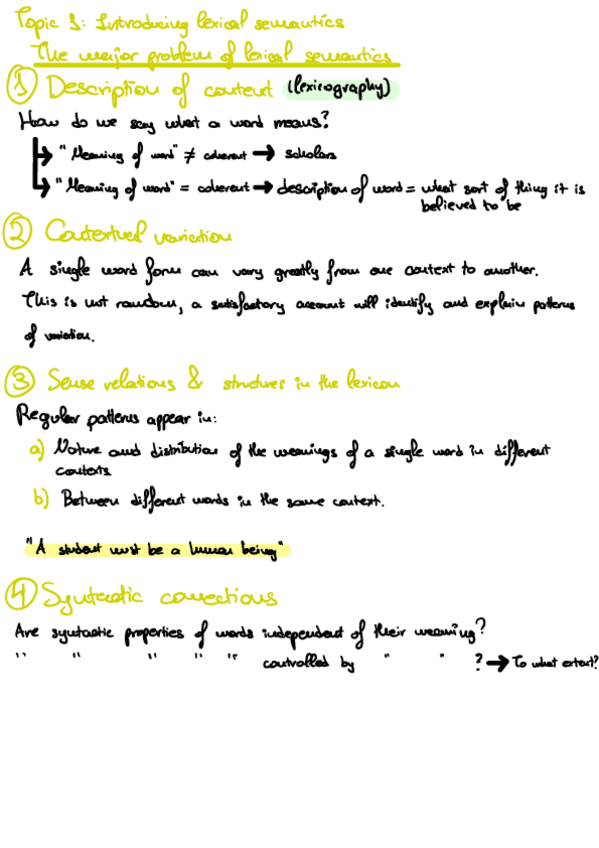 Topic 1: Introducing lexical semantics
The major problem of lexical semantics
1 Description of content (lexicography)
How do we say what a word means?
"Meaning of word" ≠ coherent → scholars
"Meaning of word" = coherent → description of word = what sort of thing it is
believed to be
2 Contextual variation
A single word form can vary greatly from one context to another.
This is not random, a satisfactory account will identify and explain patterns
of variation.
3 Sense relations & structures in the lexicon
Regular patterns appear in:
a) Nature and distribution of the meanings of a single word in different
contexts
b) Between different words in the same context.
"A student must be a human being"
4 Syntactic connections
Are syntactic properties of words independent of their meaning?
" " " " " controlled by " " ? → To what extent?